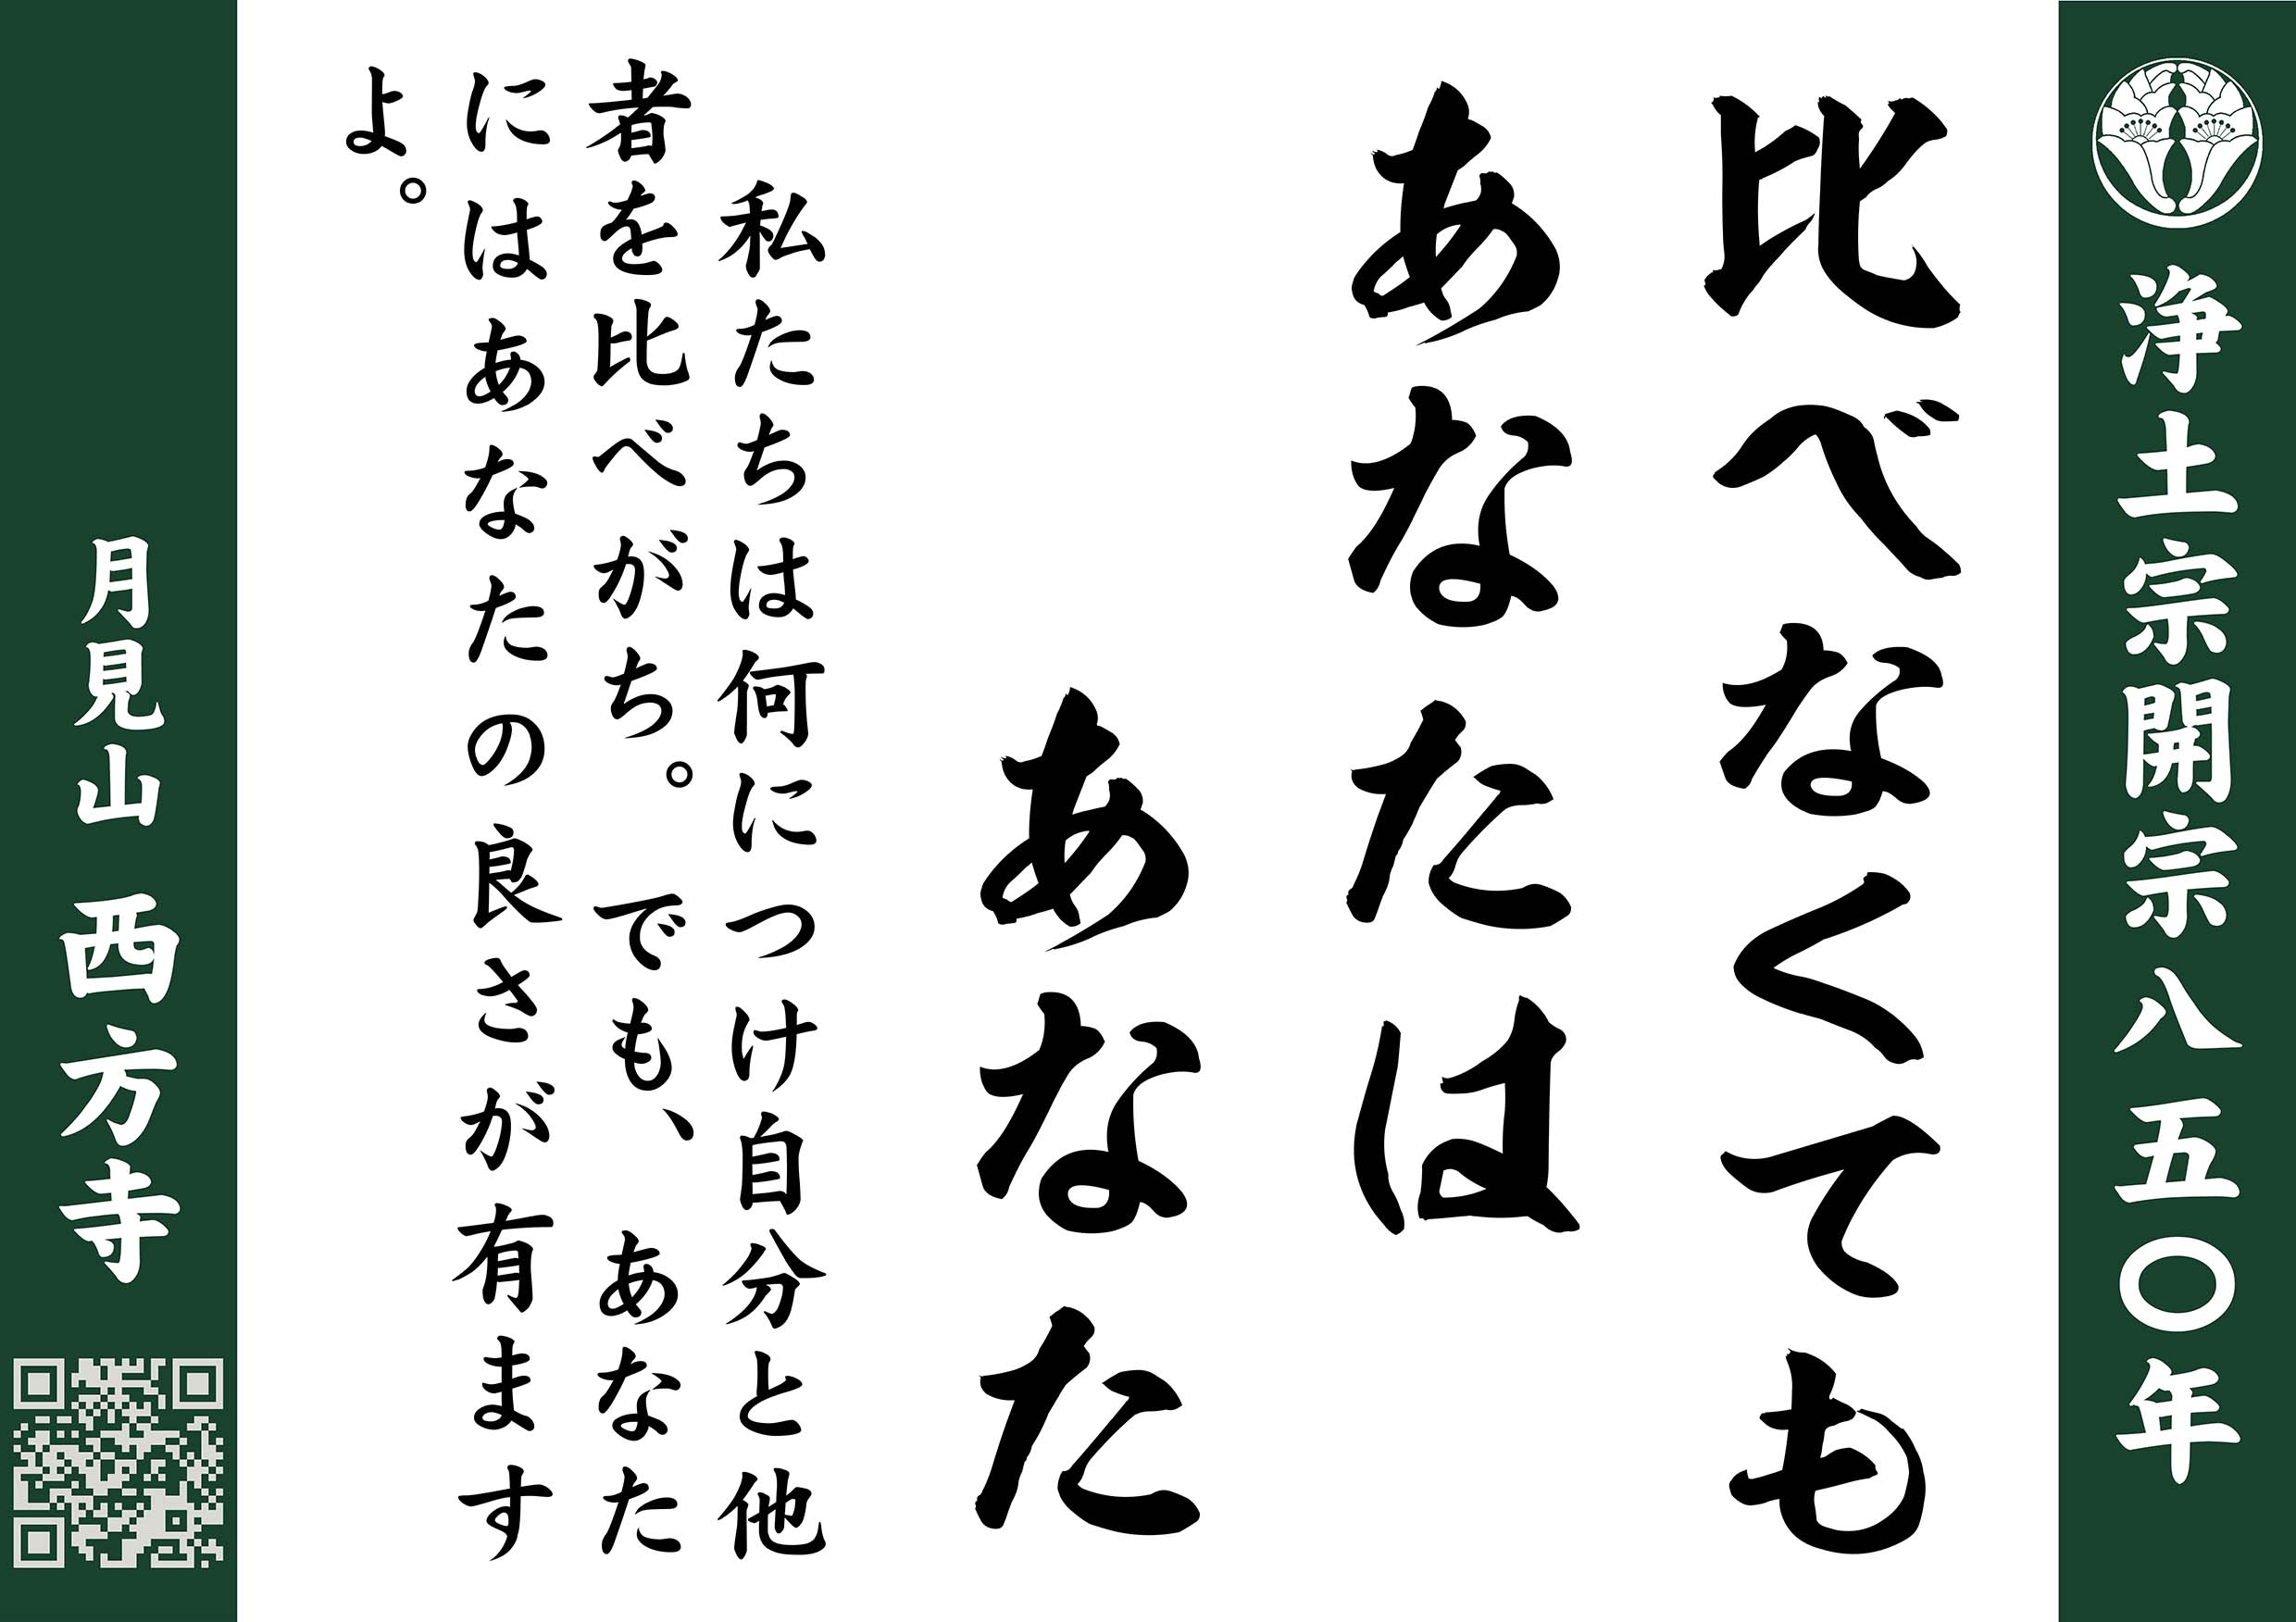 浄土宗開宗八五〇年
比べなくても
あなたは
あなた
私たちは何につけ自分と他
者を比べがち。でも、あなた
にはあなたの良さが有ます
よ。
月見山 西方寺